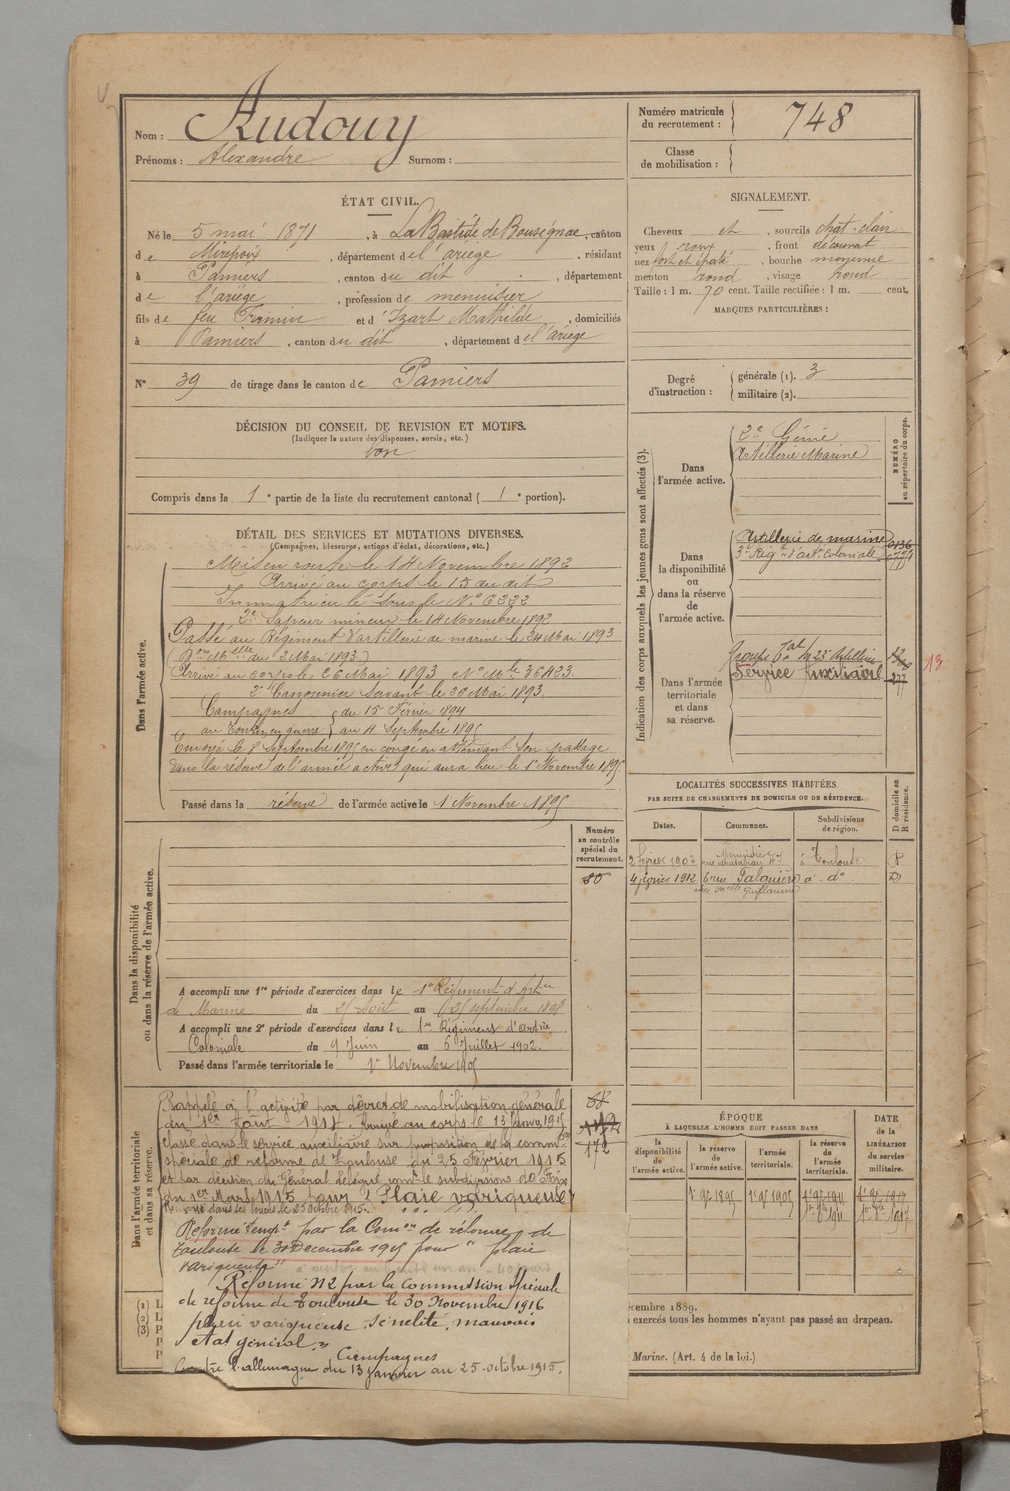 Nom : Audouy
Prénoms : Alexandre Surnom :
Numéro matricule du recrutement : 748
Classe de mobilisation :
ÉTAT CIVIL.
Né le 5 mai 1871, à La Bastide de Bousignac, canton
de Mirepoix, département de l'ariège, résidant
à Pamiers, canton du dit, département
de l'ariège, profession de menuisier
fils de feu Firmin et d'Izart Mathilde, domiciliés
à Pamiers, canton du dit, département de l'ariège
N° 39 de tirage dans le canton de Pamiers
SIGNALEMENT.
Cheveux et, sourcils chat. clair
yeux roux, front découvert
nez épaté, bouche moyenne
menton rond, visage rond
Taille : 1 m. 70 cent. Taille rectifiée : 1 m. cent.
MARQUES PARTICULIÈRES :
Degré d'instruction : générale (1). 3
militaire (2).
DÉCISION DU CONSEIL DE REVISION ET MOTIFS.
(Indiquer la nature des dispenses, sursis, etc.)
bon
Compris dans la 1e partie de la liste du recrutement cantonal (1e portion).
DÉTAIL DES SERVICES ET MUTATIONS DIVERSES.
(Campagnes, blessures, actions d'éclat, décorations, etc.)
Dans l'armée active.
Mis en route le 14 Novembre 1892
Arrivé au corps le 15 du dit
Immatriculé sous le N° 6222
2e Sapeur mineur le 14 Novembre 1892
Passé au Régiment d'artillerie de marine le 24 Mai 1893
(Don Mlle du 2 Mai 1893)
Arrivé au corps le 26 Mai 1893 N° Mle 36423
2e Canonnier servant le 26 Mai 1893.
Campagnes du 15 Février 1894
au Tonkin en guerre au 11 Septembre 1895
Envoyé le 8 Septembre 1895 en congé en attendant son passage
dans la réserve de l'armée active qui aura lieu le 1er Novembre 1895
Passé dans la réserve de l'armée active le 1er Novembre 1895
Indication des corps auxquels les jeunes gens sont affectés (3).
NUMÉRO au répertoire du corps.
Dans l'armée active.
2e Génie
Artillerie Marine
Dans la disponibilité ou dans la réserve de l'armée active.
Artillerie de marine
3e Régt d'art. Coloniale
Dans l'armée territoriale et dans sa réserve.
Groupe Tal du 23e Artillerie
Service Auxiliaire 277
13
LOCALITÉS SUCCESSIVES HABITÉES
PAR SUITE DE CHANGEMENTS DE DOMICILE OU DE RÉSIDENCE.
Dates. Communes. Subdivisions de région. D domicile ou R résidence.
2 février 1902 à Toulouse R
4 février 1912 6 rue à do D
Guillaume
Dans la disponibilité ou dans la réserve de l'armée active.
Numéro au contrôle spécial du recrutement.
80
A accompli une 1re période d'exercices dans le 1er Régiment d'Artie
de Marine du 29 Août au 25 septembre 1898
A accompli une 2e période d'exercices dans le 1er Régiment d'artie
Coloniale du 9 Juin au 6 Juillet 1902.
Passé dans l'armée territoriale le 1er Novembre 1905
Dans l'armée territoriale et dans sa réserve.
172
Rappelé à l'activité par décret de mobilisation générale
du 1er Août 1914. Arrivé au corps le 13 Janvier 1915
Classé dans le service auxiliaire sur proposition de la comm on
spéciale de réforme de Toulouse du 25 Février 1915
et par décision du Général délégué comt le subdivisions de Foix
du 1er Mars 1915 pour "Plaie variqueuse"
Renvoyé dans ses foyers le 25 octobre 1915.
Réformé Tempt par la Comon de réforme de
Toulouse le 30 Décembre 1915 pour "plaie
variqueuse"
Réformé N°2 par la commission Spéciale
de réforme de Toulouse le 30 Novembre 1916
variqueuse, sénilité, mauvais
état général"
Campagnes
Contre l'allemagne du 13 Janvier au 25 octobre 1915.
ÉPOQUE
À LAQUELLE L'HOMME DOIT PASSER DANS
la disponibilité de l'armée active. la réserve de l'armée active. l'armée territoriale. la réserve de l'armée territoriale. DATE de la LIBÉRATION du service militaire.
1er 9bre 1895 1er 9bre 1905 1er 9bre 1911 1er 9bre 1917
1er 8bre 1911 1er 8bre 1917
(1)
(2)
(3)
écembre 1889.
exercés tous les hommes n'ayant pas passé au drapeau.
Marine. (Art. 4 de la loi.)